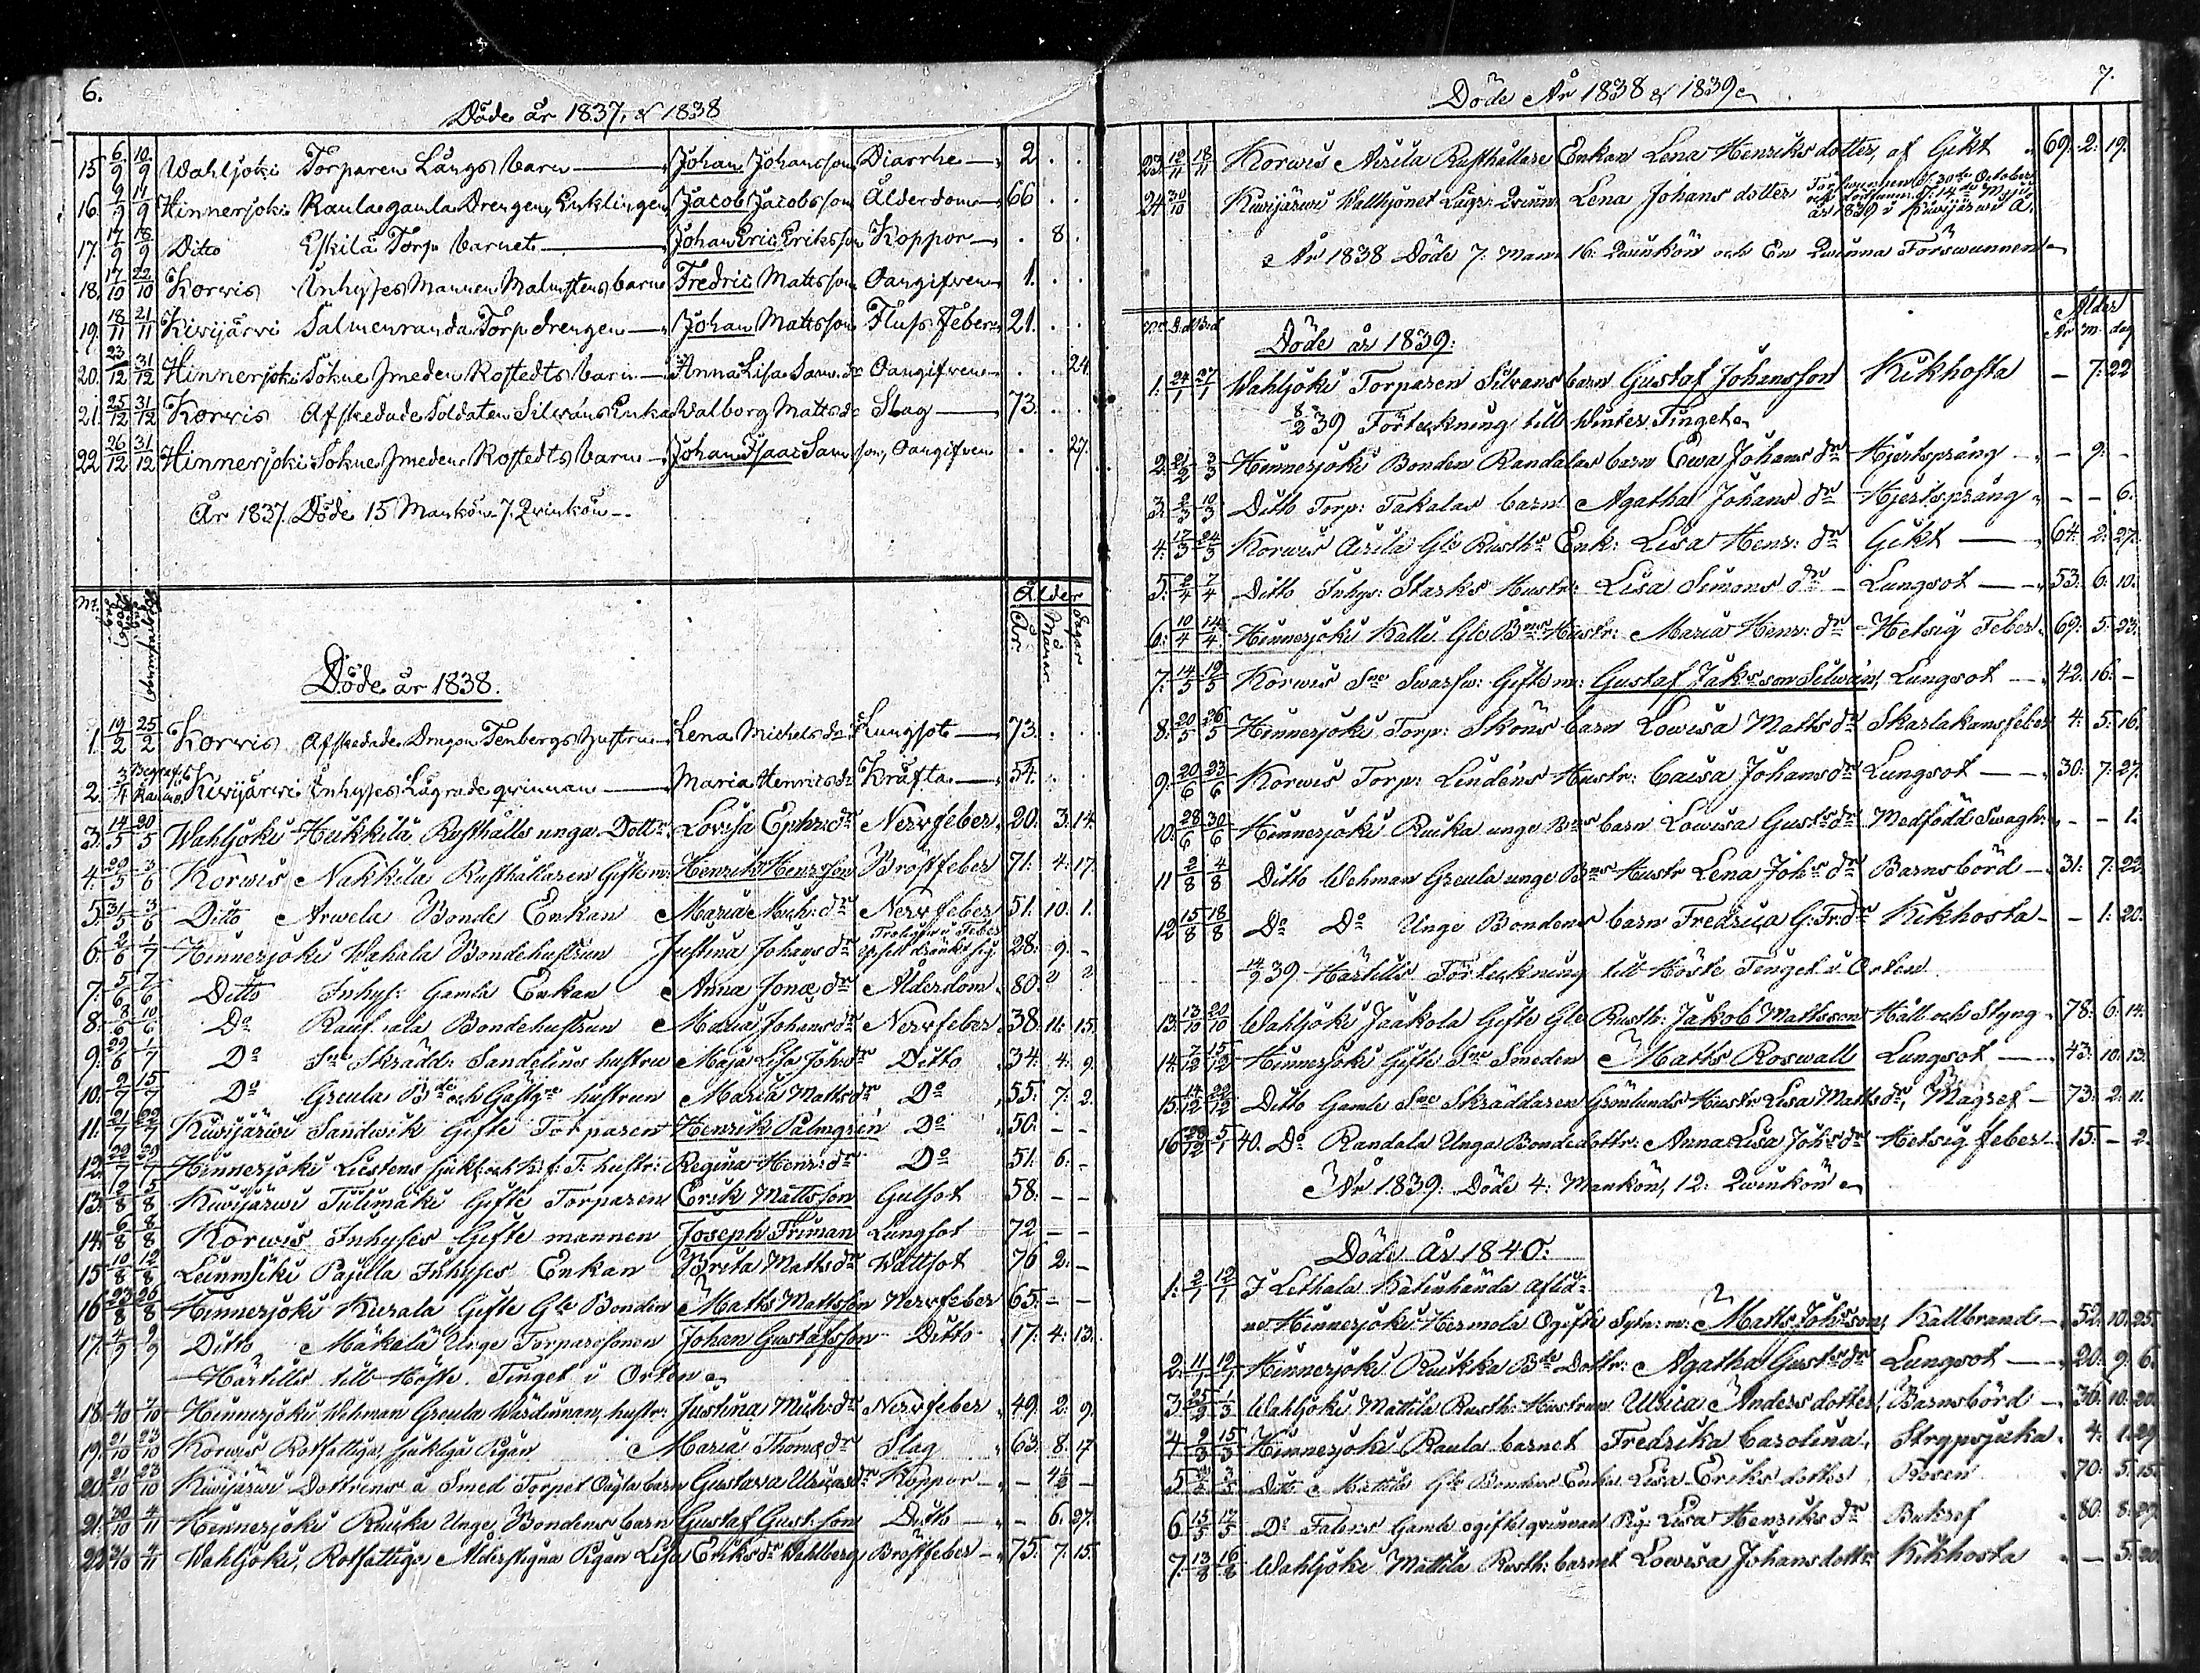 6.
Döde år 1837, & 1838
15 6/9 10/9 Wahljoki Torparen Långs barn — Johan Johansson Diarrhe — 2 . .
16. 9/9 17/9 Hinnerjoki Raula gamla Drengen, Enklingen Jacob Jacobsson Ålderdom — 66 . .
17. 17/9 18/9 Ditto Eskilä Torp barnet — Johan Eric Eriksson Koppor — . 8 .
18. 17/10 22/10 Korvis Inhyses Mannen Malmstens barn Fredric Mattsson Oangifven 1. . .
19. 18/11 21/11 Kivijärvi Salmenranda Torp drengen — Johan Mattsson Fluss Feber 21. . .
20. 23/12 31/12 Hinnerjoki Sokne Smeden Rostedts barn — Anna Lisa Sam. dr Oangifven . . 24.
21. 25/12 31/12 Korvis Afskedade Soldaten Silwäns Enka Walborg Matts dr Slag — 73. . .
22 26/12 31/12 Hinnerjoki Sokne Smeden Rostedts barn — Johan Isaac Sam son, Oangifven . . 27.
År 1837. Döde 15 Mankön 7. Qvinkön —
Nr. Ålder
År. Månar. Dagar
Döde år 1838.
1. 19/2 25/2 Korvis Afskedade Dragon Tenbergs hustru — Lena Michels dr Lungsot — 73. . .
2. 3/4 Begraf. Kivijärvi Inhyses Lägrade qvinnan — Maria Henrics dr Kräfta — 54. . .
3. 14/5 20/5 Wahljoki Heikkilä Rusthålls unga Dottr. Lovisa Ephr: dr Nervfeber 20. 3. 14.
4. 29/5 3/6 Korwis Nakkila Rusthållaren Gifte m: Henrik Henr. son Bröstfeber 71. 4. 17.
5. 31/5 3/6 Ditto Arwela Bonde Enkan Maria Mich: dr Nervfeber 51. 10. 1.
6. 2/6 1/7 Hinnerjoki Wahala Bondehustrun Justina Johans dr 28. 9. -
7. 5/6 7/6 Ditto Inhys: Gamla Enkan Anna Jonæ dr Ålderdom 80. ? ?
8. 8/6 10/6 Do Bondehustrun Maria Johans dr Nervfeber 38. 11. 15.
9. 29/6 1/7 Do Sne Skrädd: Sandelins hustru Maja Lisa Joh: dr Ditto 34. 4. 9.
10. 2/7 15/7 Do Greula Bde och Gästge hustrun Maria Matts dr Do 55. 7. 2.
11. 21/7 22/7 Kivijärwi Sandwik Gifte Torparen Henrik Palmgrén Do 50. - -
12. 22/7 29/7 Hinnerjoki hustr: Regina Henr: dr Do 51. 6. -
13. 2/8 5/8 Kivijärwi Tulimäki Gifte Torparen Erik Mattsson Gulsot 58. - -
14. 6/8 8/8 Korwis Inhyses Gifte mannen Joseph Friman Lungsot 72 - -
15 10/8 12/8 Pajilla Inhyses Enkan Brita Matts dr Wattsot 76 2. -
16 23/8 26/8 Hinnerjoki Kierala Gifte Gle Bonden Matts Mattsson Nervfeber 65. - -
17. 4/9 9/9 Ditto Mäkelä Unge Torparesonen Johan Gustafsson Ditto 17. 4. 13.
Härtills till Höste Tinget i Orten
18. Hinnerjoki Wehman Greula Wärdinnan, hustr: Justina Mich: dr Nervfeber 49. 2. 9.
19. 21/10 23/10 Korwis Rotfattiga, sjukliga Pigan Maria Thomæ dr Slag 63. 8. 17
20. 21/10 23/10 Kivijärwi Dottrens å Smed Torpet Oägta barn Gustava Ulrica dr Koppor — - 4½ -
21. 30/10 4/11 Hinnerjoki Ruika Unge Bondens barn Gustaf Gust. son Ditto — - 6. 27.
22 31/10 4/11 Wahljoki, Rotfattiga Ålderstigna Pigan Lisa Eriks dr Wahlberg Bröstfeber — 75. 7. 15.
7.
Döde År 1838 & 1839
23. 12/11 18/11 Korwis Airila Rusthållare Enkan Lena Henriks dotter, af Gikt 69. 2. 19.
24 30/10 Kivijärwi Wallhjonet Lägr: Qvinn: Lena Johans dotter Förswunnen d. 30de October
och återfunnen d. 14de Maji
år 1839 i Kivijärwi å.
År 1838 Döde 7. Mann 16. Qwinkön och En Qwinna Förswunnen
Nr. Död Beg. Ålder
År m. dag
Döde år 1839.
1. 24/1 27/1 Wahljoki Torparen Silvans barn Gustaf Johansson Kikhosta — 7. 22
8/2 39 Förteckning till Winter Tinget
2. 21/2 3/3 Hinnerjoki Bonden Randalas barn Ewa Johans dr Hjertsprång — - 9. -
3. 2/3 10/3 Ditto Torp: Takalas barn Agatha Johans dr Hjertsprång - - 6.
4. 17/3 24/3 Korwis Airila Gle Rusths Enk: Lisa Henr: dr Gikt — 64. 2. 27.
5. 2/4 7/4 Ditto Inhys: Starks Hustr: Lisa Simons dr Lungsot — 53. 6. 10.
6. 10/4 14/4 Hinnerjoki Kalli Gle Bns Hustr: Maria Henr: dr Hetsig Feber 69. 5. 23.
7. 14/5 19/5 Korwis Sne Swarfw: Gifte m: Gustaf Jaksson Silwän, Lungsot — 42. 16. -
8. 20/5 26/5 Hinnerjoki Torp: Sköns barn Lowisa Matts dr Skarlakansfeber 4. 5. 16.
9. 20/6 23/6 Korwis Torp: Lindéns Hustr: Caisa Johans dr Lungsot — 30. 7. 27.
10. 28/6 30/6 Hinnerjoki Ruika unge Bns barn Lowisa Gusts dr Medfödd Swagh. - - 1.
11 2/8 4/8 Ditto Wehman Greula unge Bns Hustr Lena Johs dr Barnsbörd — 31. 7. 22
12 15/8 18/8 Do Do Unge Bondens barn Fredrica G: Fr: dr Kikhosta — - 1. 20.
14/9 39 Härtills Förteckning till Höste Tinget i Orten
13. 13/10 20/10 Wahljoki Jaakola Gifte Gle Rusth: Jakob Mattsson Håll och Styng 78. 6. 14.
14. 7/12 15/12 Hinnerjoki Gifte Sne Smeden Matts Roswall Lungsot — 43. 10. 13.
15. 14/12 22/12 Ditto Gamle Sne Skräddaren Grönlunds Hustr. Lisa Matts dr, Magref — 73. 2. 11.
16 29/12 5/1 40. Do Randala Unga Bondedottr: Anna Lisa Johs dr Hetsig feber 15. - 2.
År 1839. Döde 4: Mankön, 12: Qwinkön
Döde År 1840.
1. 2/1 12/1 I Lethala Katinhända afled:
ne Hinnerjoki Hermola Ogifte Sytn: m: Matts Johsson, Kallbrand — 52. 10. 25.
2. 11/1 19/1 Hinnerjoki Ruikka Bde Dottr: Agatha Gusts dr Lungsot — 20. 9. 6.
3. 25/2 1/3 Wahljoki Mattila Rusth: Hustrun Ulrica Anders dotter, Barnsbörd — 36. 10. 20.
4 9/3 15/3 Hinnerjoki Raula barnet Fredrika Carolina, Strypsjuka 4. 1. 29.
5 Ditto Mattila Gle Bondens Enka Lisa Eriks dotter Rosen 70. 5. 15.
6 15/5 17/5 Do Falens Gamle ogifte qvinnan Pig: Lisa Henriks dr Bukref 80. 8. 29.
7. 13/8 16/8 Wahljoki Mattila Rusth: barnet Lowisa Johansdottr Kikhosta — 5. 20.